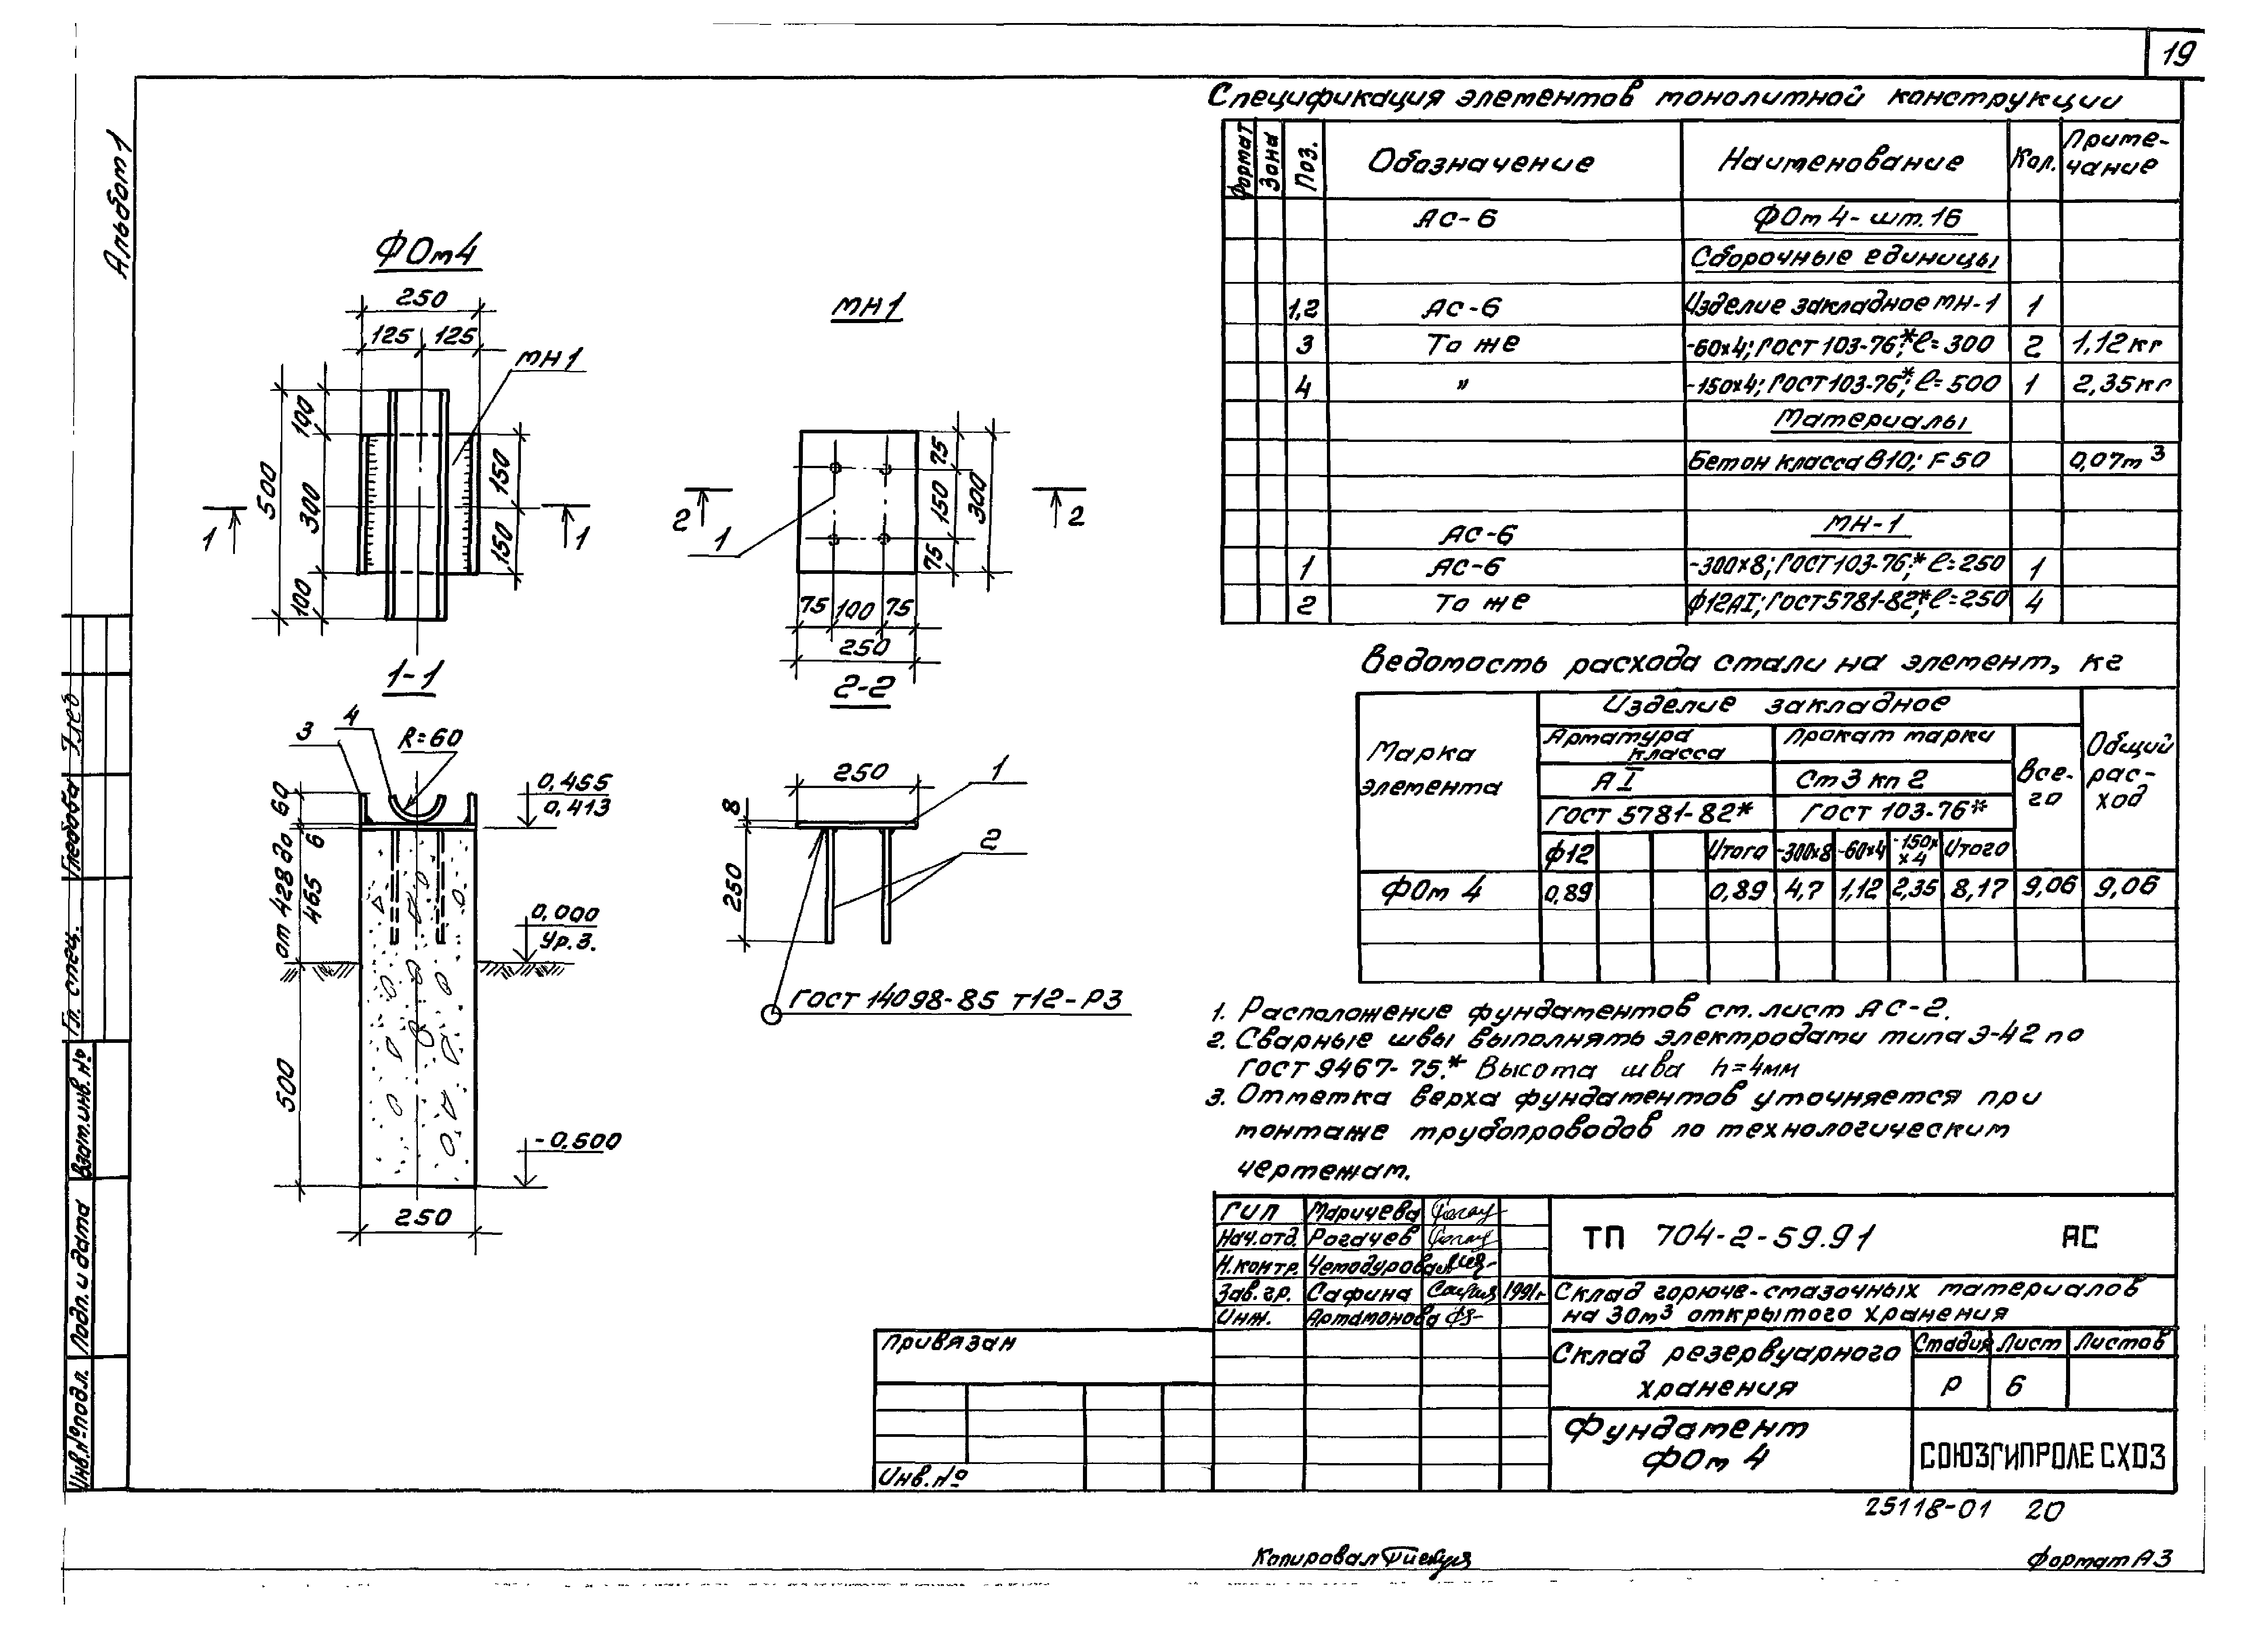 19
Альбом 1
ФОм4
250
125 125
МН1
100
500
300
150
150
100
1 1
МН1
75
150
300
75
2 2
1
75 100 75
250
1-1
3 4 R=60
60
0,455
0,413
от 428 до
465 6
0,000
Ур.З.
500
-0,500
250
2-2
250
1
8
250
2
ГОСТ 14098-85 Т12-Р3
Спецификация элементов монолитной конструкции
Формат Зона Поз. Обозначение Наименование Кол. Приме-
чание
АС-6 ФОм 4- шт.16
Сборочные единицы
1,2 АС-6 Изделие закладное МН-1 1
3 То же -60х4; ГОСТ 103-76*; ℓ=300 2 1,12кг
4 " -150х4; ГОСТ 103-76*; ℓ=500 1 2,35кг
Материалы
Бетон класса В10; F50 0,07м³
АС-6 МН-1
1 АС-6 -300х8; ГОСТ 103-76*; ℓ=250 1
2 То же ф12АI; ГОСТ 5781-82*; ℓ=250 4
Ведомость расхода стали на элемент, кг
Марка
элемента
Изделие закладное
Арматура
класса
Прокат марки
Все-
го
Общий
рас-
ход
АI Ст3 кп 2
ГОСТ 5781-82* ГОСТ 103-76*
ф12 Итого -300х8 -60х4 -150х
х4 Итого
ФОм 4 0,89 0,89 4,7 1,12 2,35 8,17 9,06 9,06
1. Расположение фундаментов см. лист АС-2.
2. Сварные швы выполнять электродами типа Э-42 по
ГОСТ 9467-75.* Высота шва h=4мм
3. Отметка верха фундаментов уточняется при
монтаже трубопроводов по технологическим
чертежам.
ГИП Маричева
Нач.отд. Рогачев
Н.контр. Чемодурова
Зав.гр. Сафина 1991г.
Инж. Артамонова
ТП 704-2-59.91 АС
Склад горюче-смазочных материалов
на 30м³ открытого хранения
Склад резервуарного
хранения
Стадия Лист Листов
Р 6
Фундамент
ФОм 4
СОЮЗГИПРОЛЕСХОЗ
Привязан
Инв.№
Гл. спец. Глебова
Взам.инв.№
Подп. и дата
Инв.№подл.
25118-01 20
Копировал
Формат А3